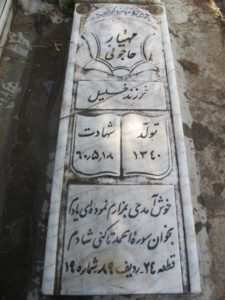 مهیار
حاجوئی
فرزند خلیل
تولد شهادت
۱۳۴۰ ۶۰٫۵٫۱۸
خوش آمدی بمزارم نموده‌ای یادم
بخوان سوره الحمد تا کنی شادم
قطعه ۲۴ ردیف ۸۹ شماره ۱۹